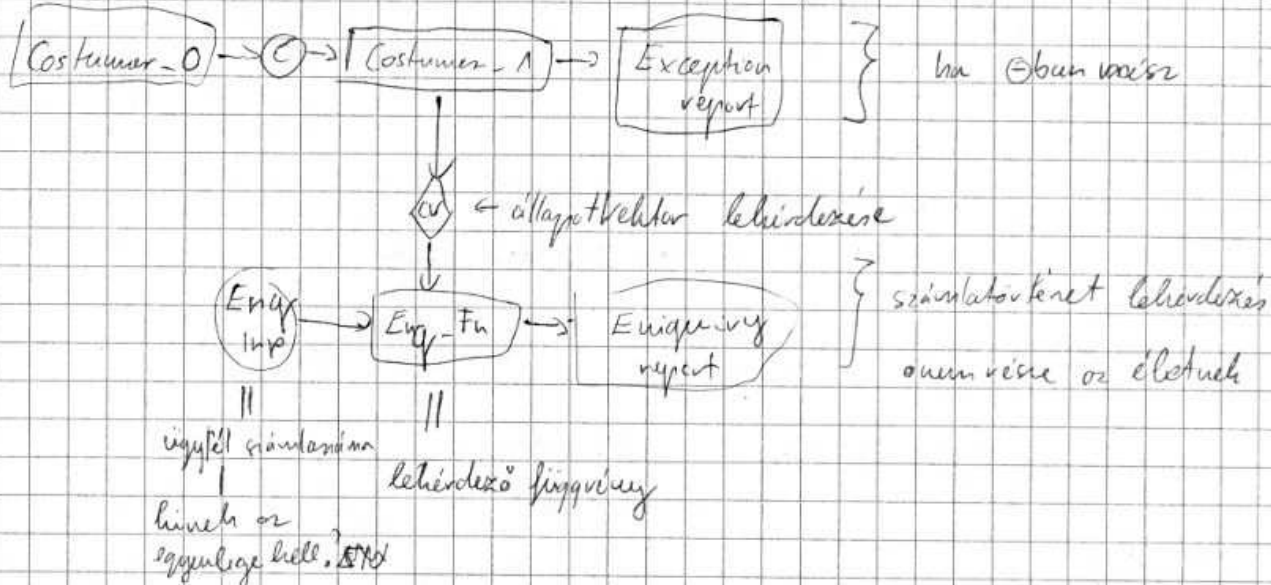 Costumer_0 C Costumer_1 Exception
report
ha ⊖ban
cv ← állapotvektor lekérdezése
Enq
inp
Enq_Fn
Eniquiry
report
számlatörténet lekérdezés
nem része az életnek
ügyfél számlaszáma
lekérdező függvény
kinek az
egyenlege kell?